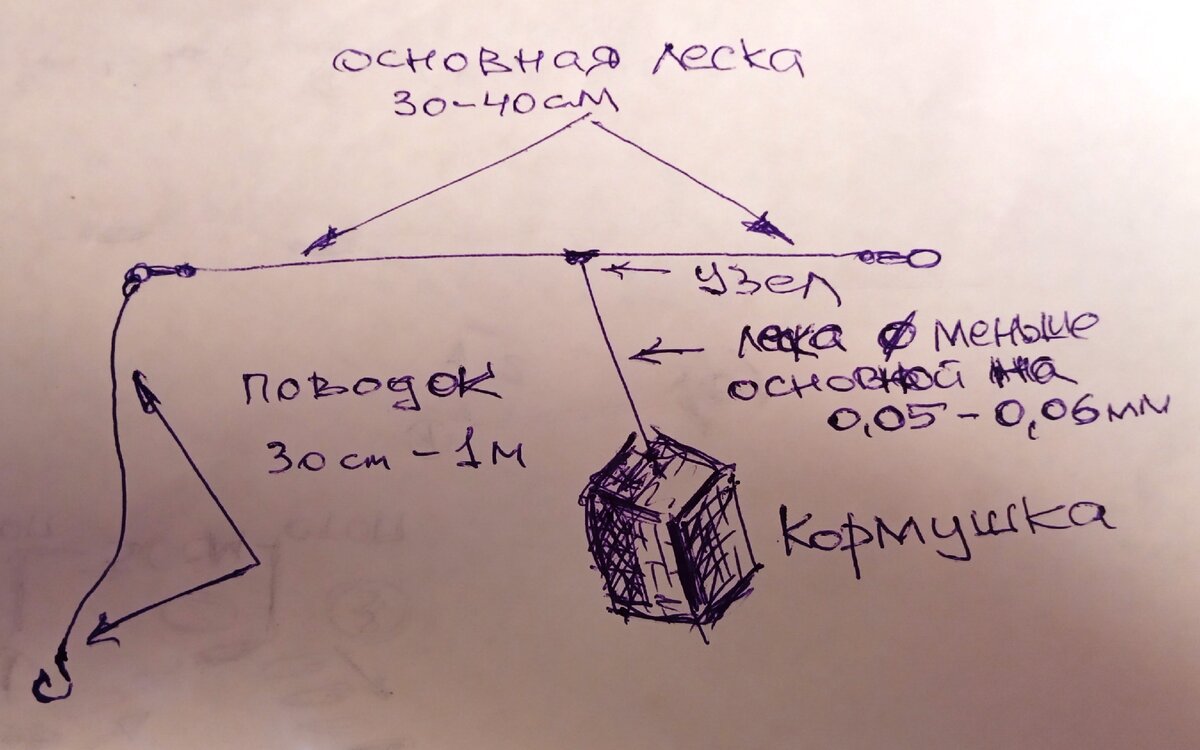 основная леска
30-40см
узел
леска ϕ меньше
основной на
0,05 - 0,06мм
поводок
30см - 1м
Кормушка